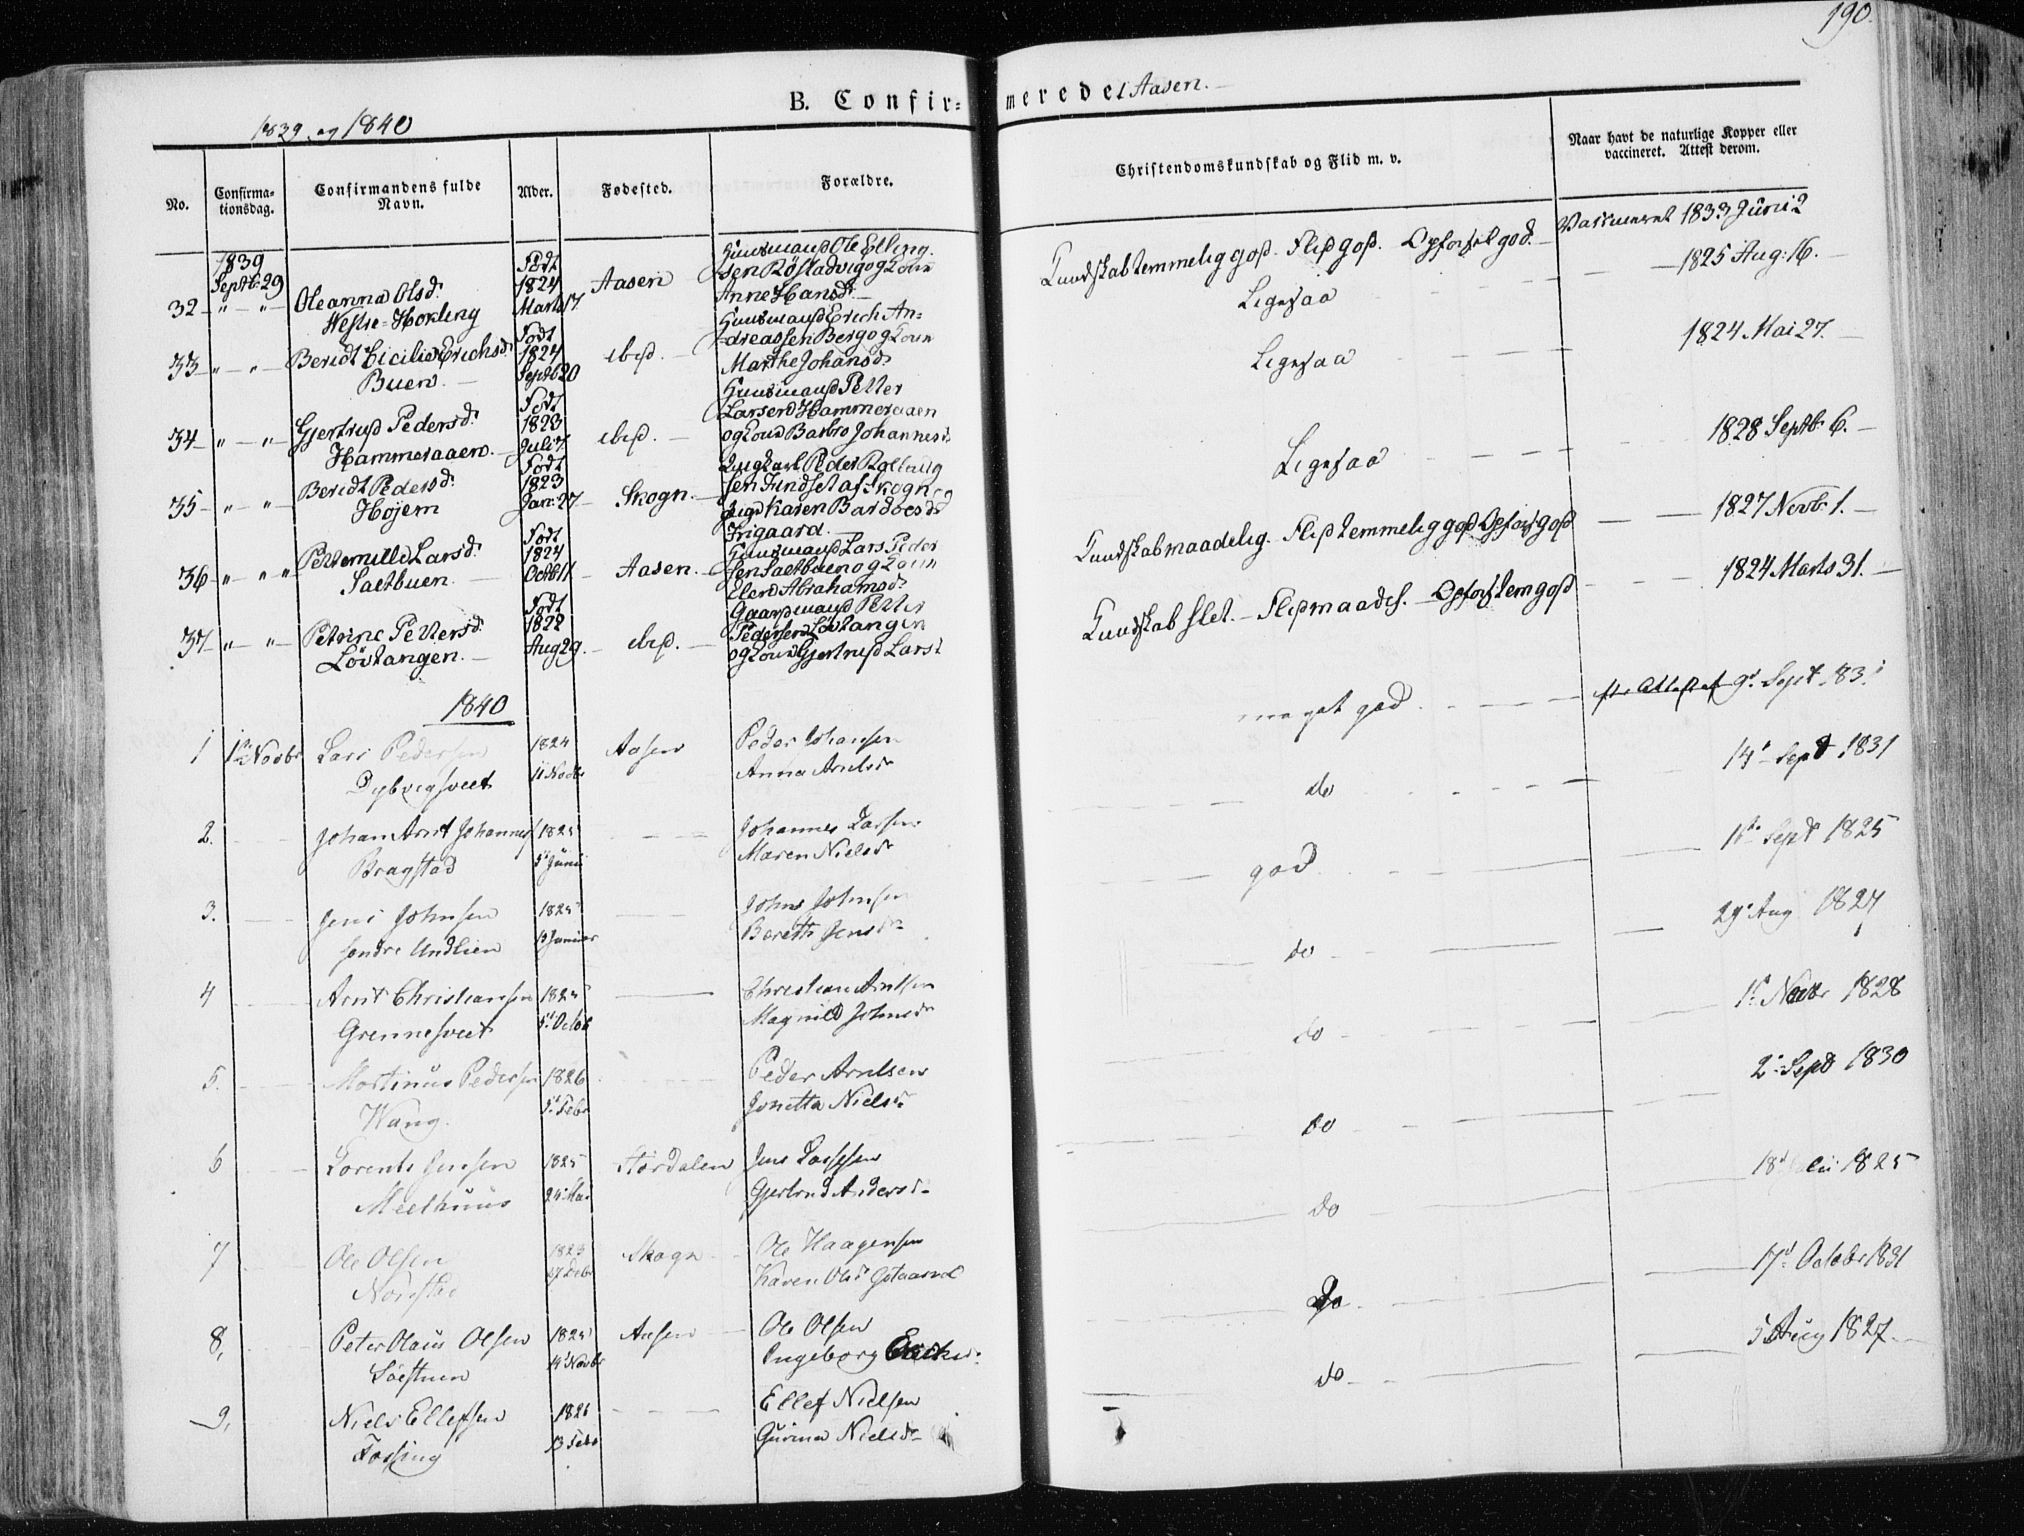 190.
B. Confirmerede i Aasen.
1839 og 1840
No.
Confirmationsdag.
Confirmandens fulde Navn.
Alder.
Fødested.
Forældre.
Christendomskundskab og Flid m. v.
Naar havt de naturlige Kopper eller vaccineret. Attest derom.
1839
Septbr 29
32 " " Oleanna Olsd.
Westre-Hokling
Født
1824
Marts 17
Aasen
Huusmand Ole Elling-
sen Røstadvig og Kone
Anne Hansd.
Kundskab temmelig god. Flid god. Opførsel god. Vaccineret 1833 Juni 2
33 " " Beridt Cicilia Erichsd.
Buen
Født
1824
Septb 20
ibid.
Huusmand Erich An-
dreassen Berg og Kone
Marthe Johansd.
Ligesaa 1825 Aug: 16.
34 " " Gjertrud Pedersd.
Hammeraaen.
Født
1823
Juli 7
ibid.
Huusmand Petter
Larsen Hammeraaen
og Kone Barbro Johannesd.
Ligesaa 1824 Mai 27.
35 " " Beridt Pedersd.
Højem
Født
1823
Jan: 27
Skogn.
Ungkarl Peder
sen Findset af Skogn og
Karen Bardoesd.
Ligesaa 1828 Septb 6.
36 " " " Petternille Larsd.
Saltbuen
Født
1824
Octb 11
Aasen.
Huusmand Lars Peder
sen Saltbuen og Kone
Elen Abrahamsd.
Kundskab maadelig. Flid temmelig god Opførs god 1827 Novb. 1.
37 " " Petrine Pettersd.
Løvtangen.
Født
1822
Aug 29.
ibid.
Gaardmand Petter
Pedersen Løvtangen
og Kone Gjertrud Larsd.
Kundskab slet. Flid maadel. Opførs tem god 1824 Marts 31.
1840
1 1ste Novbr Lars Pedersen
Dybvigsveet
1824
11 Novbr
Aasen
Peder Johansen
Anna Arntsdr
meget god
2. Johan Arnt Johannes
Bragstad
1825
5t Juni
Johannes Larsen
Maren Nielsdr
do 14d Sept 1831
3. Jens Johnsen
søndre Undlien
1825
Januar
John Johnsen
Bereth Jensdr
god Sept 1825
4 Arnt Christiansen
Grennesveet
1825
5t Octob
Christian Arntsen
Magnild Johnsdr
do 29d Aug 1827
5. Martinus Pedersen
Wang.
1826
5t Febr
Peder Arntsen
Jonetta Nielsdr
do 1d Novbr 1828
6 Lorents Jensen
Meelhuus
1825
24 Mai
Størdalen
Jens Lassesen
Gjertrud Andersdr
do 2d Sept 1830
7 Ole Olsen
1823
Skogn
Ole Haagensen
Karen Olsd
do 18d Juli 1825
8, Peter Olaus Olsen
1825
14d Novbr
Aasen
Ole Olsen
Ingeborg
do 17d October 1831
9, Niels Ellefsen
Fossing
13 Febr
Ellef Nielsen
Gurina Nielsdr
do 5 Aug 1827